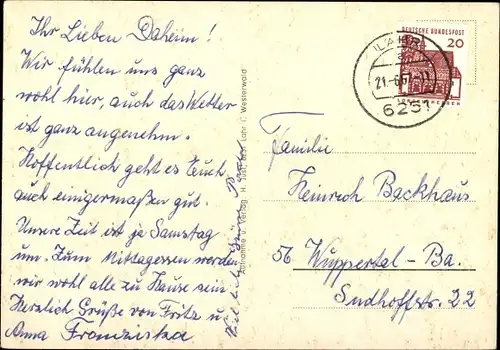 Ihr Lieben Daheim!
Wir fühlen uns ganz
wohl hier, auch das Wetter
ist ganz angenehm.
Hoffentlich geht es Euch
auch einigermaßen gut.
Unsere Zeit ist ja Samstag
um. Zum Mittagessen werden
wir wohl alle zu Hause sein
Herzlich Grüße von Fritz u.
Anna Franziska
Viel liebe Grüße
Aufnahme u. Verlag H. 6251 Lahr i. Westerwald
LAHR
21.-6.67
6251
DEUTSCHE BUNDESPOST
20
Familie
Heinrich Backhaus
56 Wuppertal-Ba.
Sudhoffstr. 22